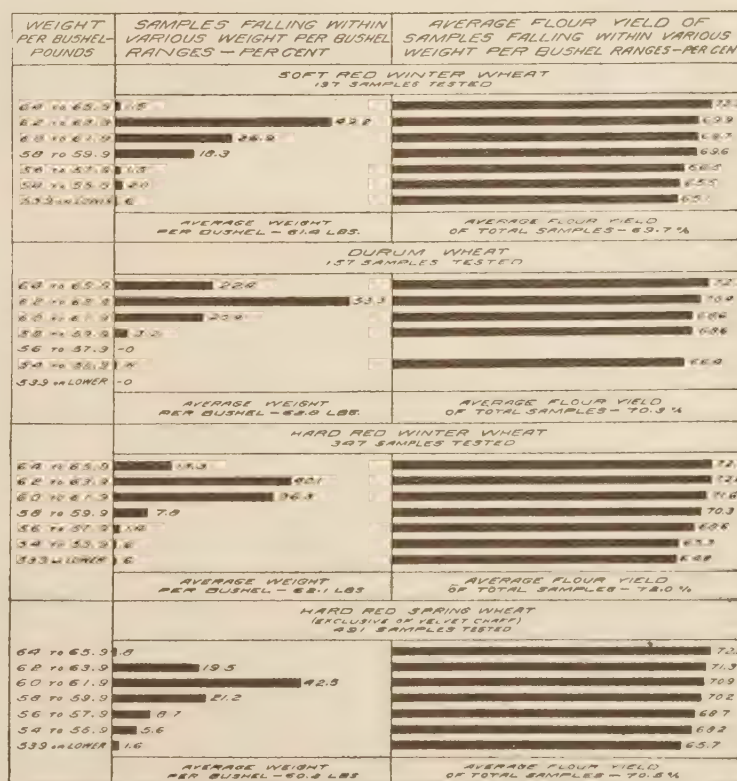 WEIGHT
PER BUSHEL-
POUNDS
SAMPLES FALLING WITHIN
VARIOUS WEIGHT PER BUSHEL
RANGES — PER CENT
AVERAGE FLOUR YIELD OF
SAMPLES FALLING WITHIN VARIOUS
WEIGHT PER BUSHEL RANGES-PER CEN
SOFT RED WINTER WHEAT
SAMPLES TESTED
64 TO 65.9 1.5
62 TO 63.9 69.9
60 TO 61.9 26.9
58 TO 59.9 18.3 69.6
56 TO 57.9 1.5
54 TO 55.9 2.0 65.5
53.9 OR LOWER .6 65.1
AVERAGE WEIGHT
PER BUSHEL — 61.4 LBS.
AVERAGE FLOUR YIELD
OF TOTAL SAMPLES — 69.7 %
DURUM WHEAT
157 SAMPLES TESTED
64 TO 65.9 22.4
62 TO 63.9 53.3 70.4
60 TO 61.9 68.6
58 TO 59.9 3.2 68.6
56 TO 57.9 -0
54 TO 55.9 66.4
53.9 OR LOWER -0
AVERAGE WEIGHT
PER BUSHEL — LBS.
AVERAGE FLOUR YIELD
OF TOTAL SAMPLES — 70.3 %
HARD RED WINTER WHEAT
347 SAMPLES TESTED
64 TO 65.9 13.3
62 TO 63.9 40.1
60 TO 61.9 36.3 71.6
58 TO 59.9 7.8 70.3
56 TO 57.9 1.4 68.6
54 TO 55.9 .6
53.9 OR LOWER .6
AVERAGE WEIGHT
PER BUSHEL — 62.1 LBS
AVERAGE FLOUR YIELD
OF TOTAL SAMPLES — %
HARD RED SPRING WHEAT
(EXCLUSIVE OF VELVET CHAFF)
491 SAMPLES TESTED
64 TO 65.9 .8
62 TO 63.9 19.5 71.3
60 TO 61.9 42.5 70.9
58 TO 59.9 21.2 70.2
56 TO 57.9 8.7 68.7
54 TO 55.9 5.6 68.2
53.9 OR LOWER 1.6 65.7
AVERAGE WEIGHT
PER BUSHEL — LBS
AVERAGE FLOUR YIELD
OF TOTAL SAMPLES — 70.5 %